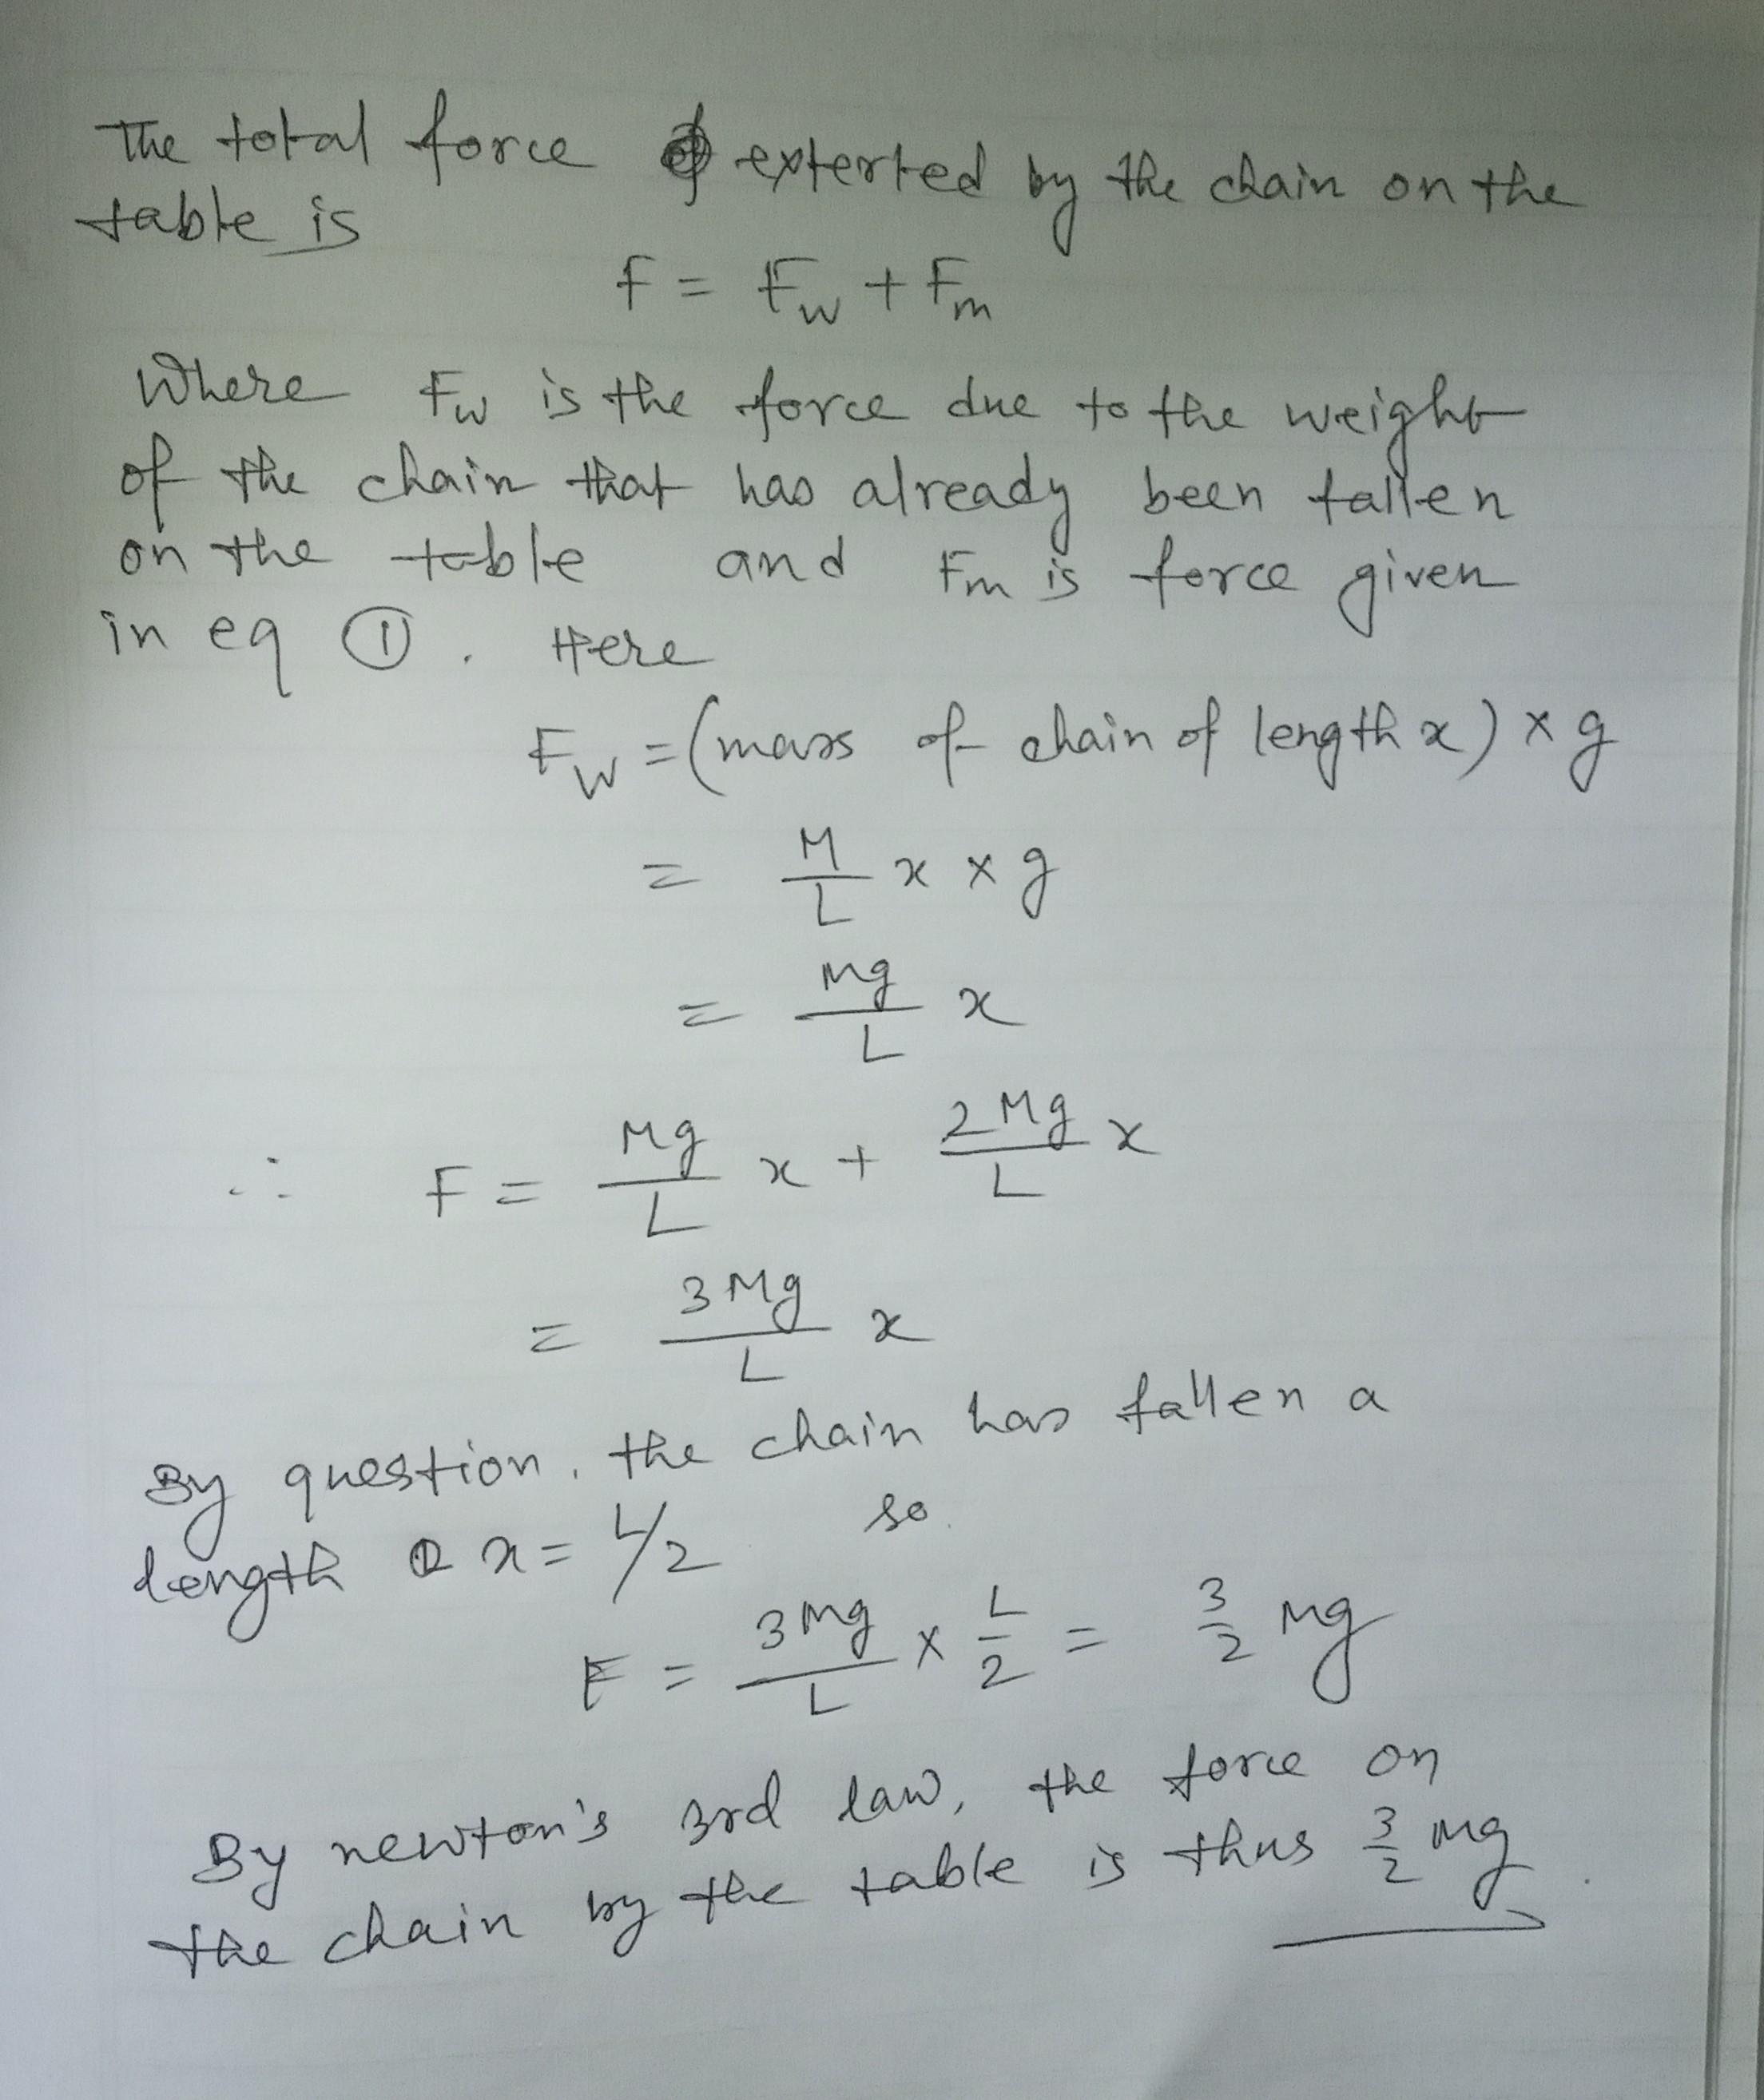 The total force exterted by the chain on the
table is
F = Fw + Fm
Where Fw is the force due to the weight
of the chain that has already been fallen
on the table and Fm is force given
in eq ①. Here
Fw = (mass of chain of length x) × g
= M/L x × g
= Mg/L x
∴ F = Mg/L x + 2Mg/L x
= 3Mg/L x
By question, the chain has fallen a
length x = L/2 so
F = 3Mg/L × L/2 = 3/2 Mg
By newton's 3rd law, the force on
the chain by the table is thus 3/2 Mg.